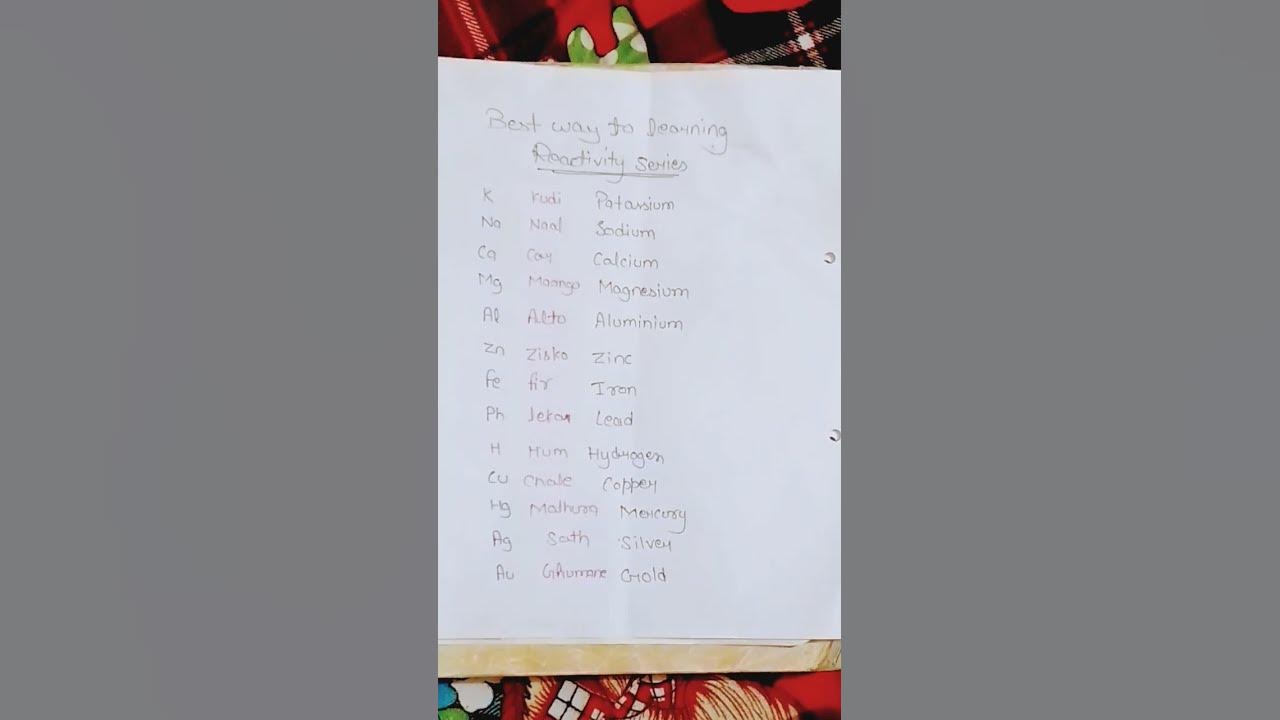 Best way to learning
Reactivity series
K Kudi Potassium
Na Naal Sodium
Ca Car Calcium
Mg Maango Magnesium
Al Alto Aluminium
Zn Zisko Zinc
Fe fir Iron
Ph lekar Lead
H Hum Hydrogen
Cu Chale Copper
Hg Mathura Mercury
Ag Sath Silver
Au Ghumane Gold